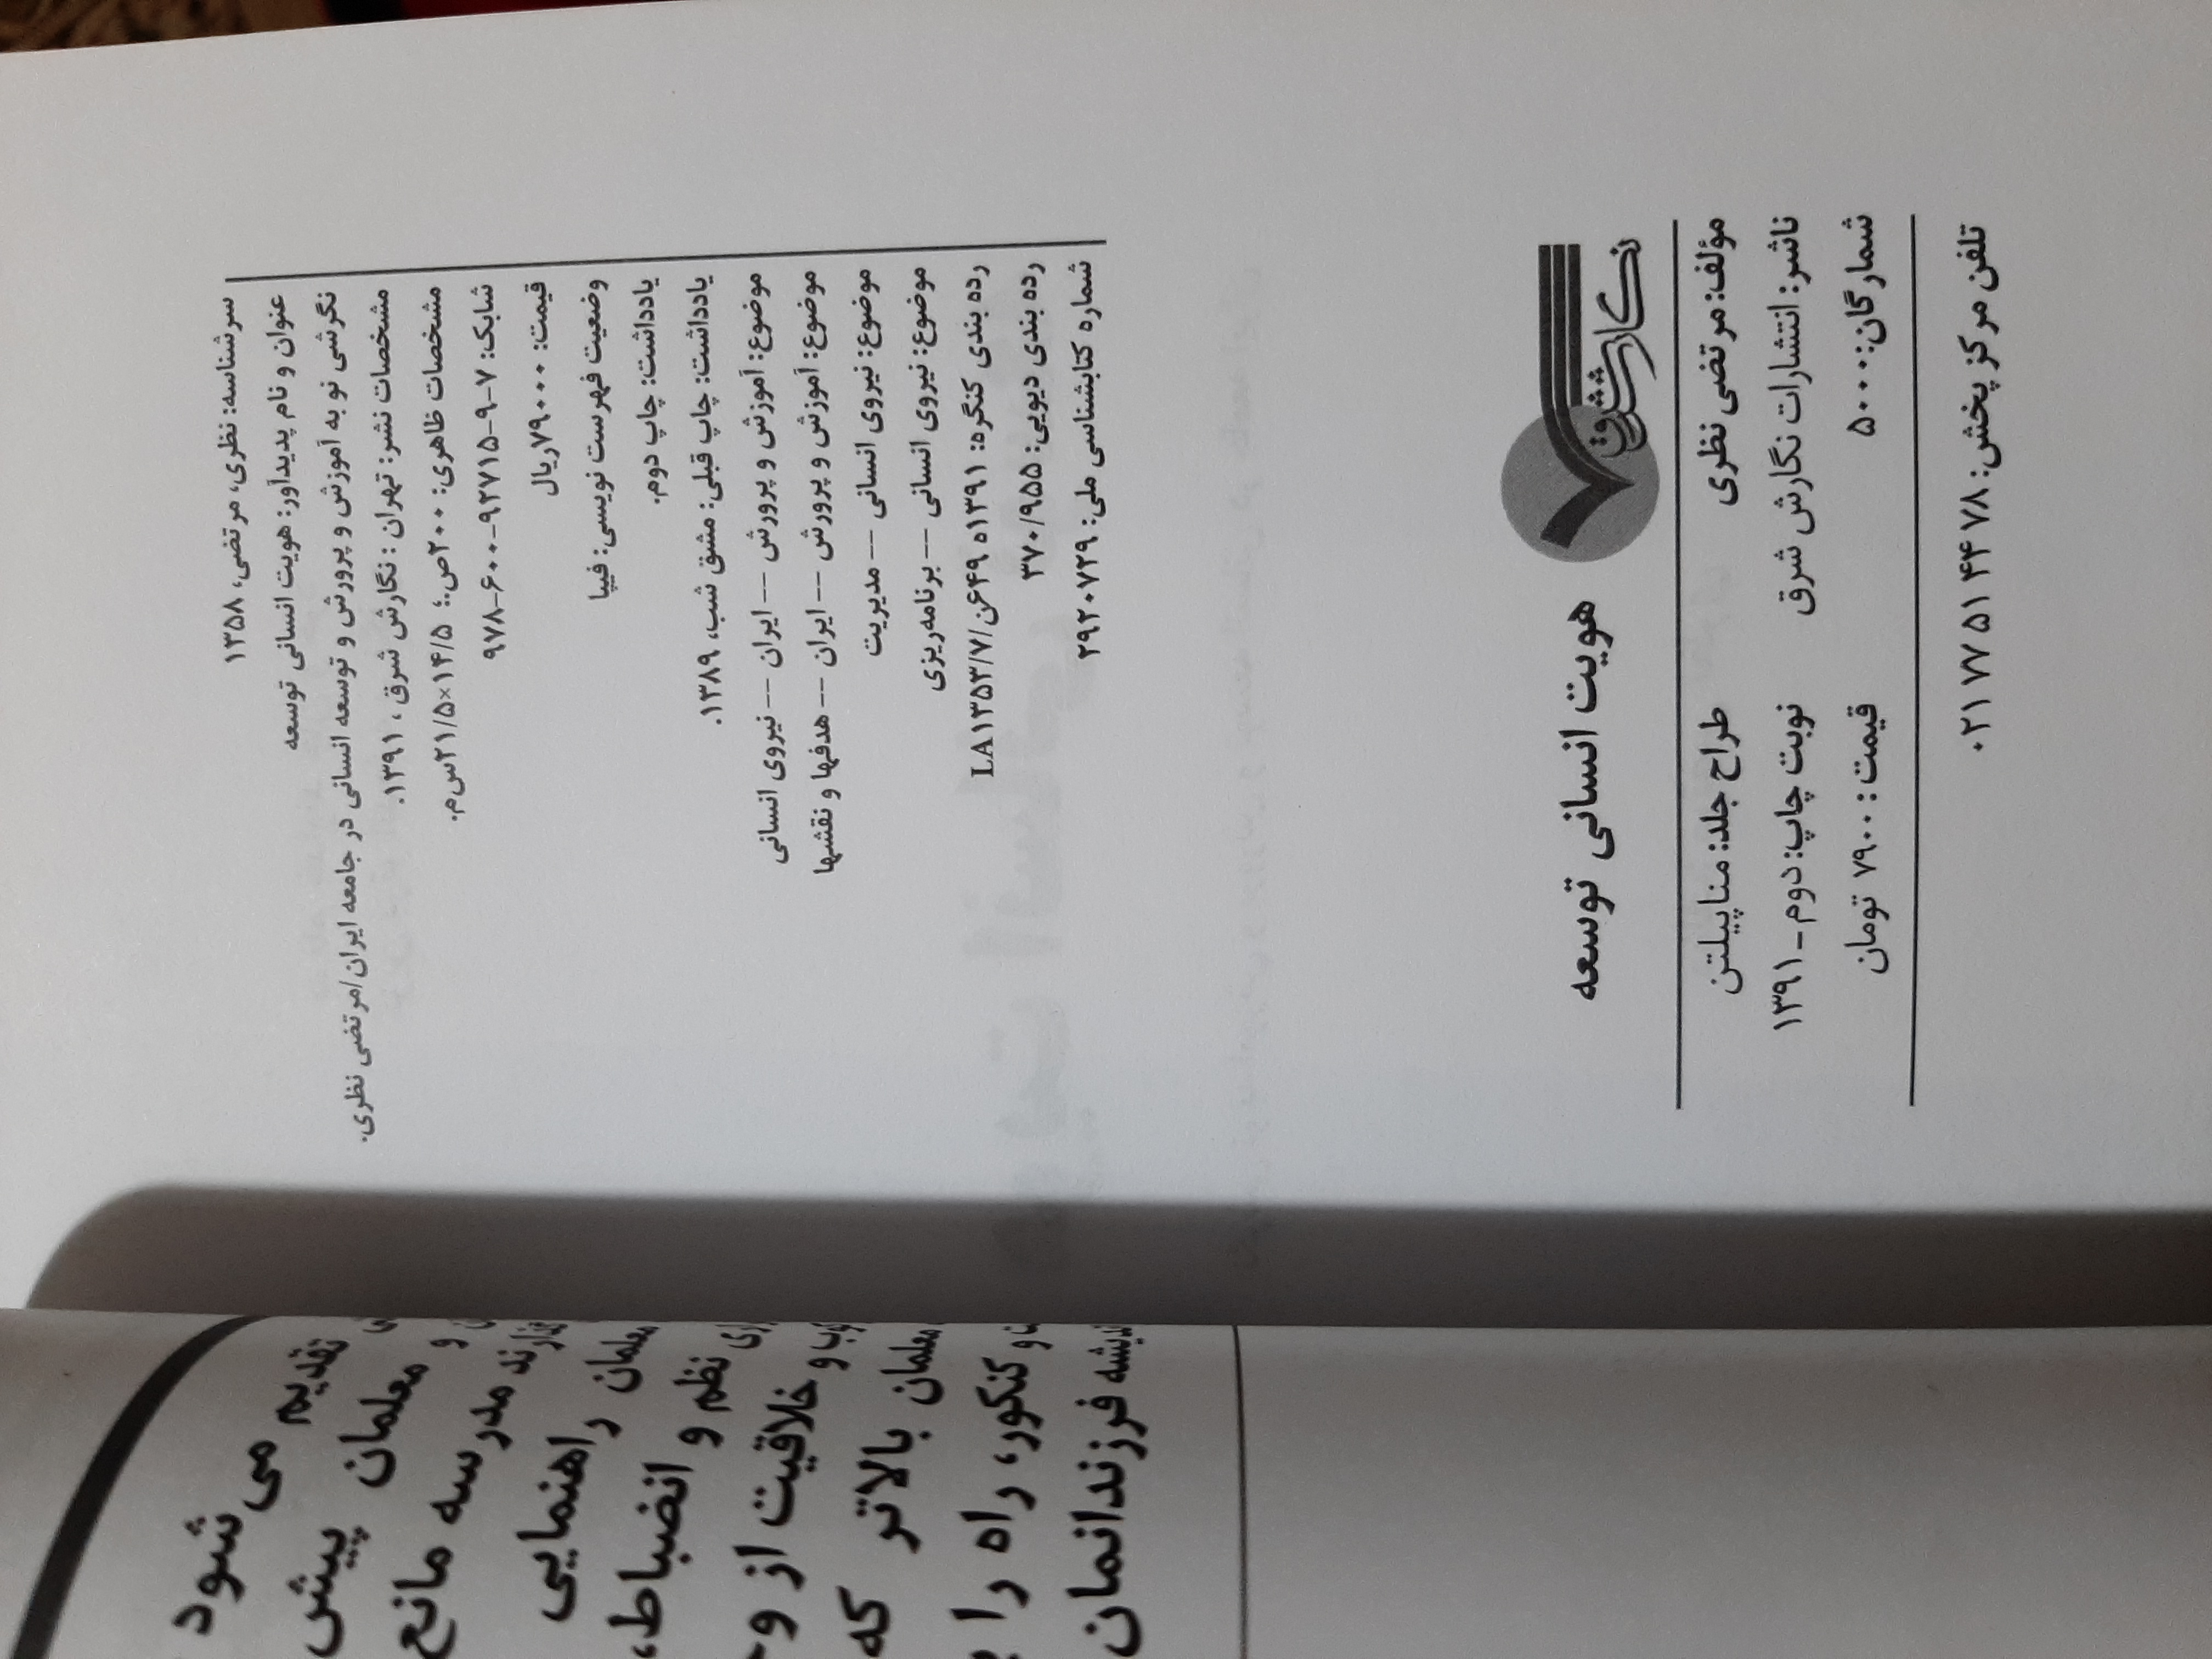 سرشناسه: نظری، مرتضی، ۱۳۵۸
عنوان و نام پدیدآور: هویت انسانی توسعه
نگرشی نو به آموزش و پرورش و توسعه انسانی در جامعه ایران/مرتضی نظری.
مشخصات نشر: تهران : نگارش شرق ، ۱۳۹۱.
مشخصات ظاهری: ۲۰۰ص.؛ ۱۴/۵×۲۱/۵س‌م.
شابک: ۷-۹-۹۲۷۱۵-۶۰۰-۹۷۸
قیمت: ۷۹۰۰۰ریال
وضعیت فهرست نویسی: فیپا
یادداشت: چاپ دوم.
یادداشت: چاپ قبلی: مشق شب، ۱۳۸۹.
موضوع: آموزش و پرورش --- ایران --- نیروی انسانی
موضوع: آموزش و پرورش --- ایران --- هدفها و نقشها
موضوع: نیروی انسانی --- مدیریت
موضوع: نیروی انسانی --- برنامه‌ریزی
رده بندی کنگره: ۱۳۹۱ ۵ه۶۴۹ن/LA۱۳۵۳/۷
رده بندی دیویی: ۳۷۰/۹۵۵
شماره کتابشناسی ملی: ۲۹۲۰۷۲۹
نگارش شرق
هویت انسانی توسعه
مؤلف: مرتضی نظری
طراح جلد: مناپیلتن
ناشر: انتشارات نگارش شرق
نوبت چاپ: دوم-۱۳۹۱
شمارگان: ۵۰۰۰
قیمت : ۷۹۰۰ تومان
تلفن مرکز پخش: ۷۸ ۴۴ ۵۱ ۷۷ ۰۲۱
تقدیم می شود
و معلمان پیش
مدرسه مانع
معلمان راهنمایی
نظم و انضباط،
و خلاقیت از و
معلمان بالاتر که
و کنکور، راه را
فرزندانمان